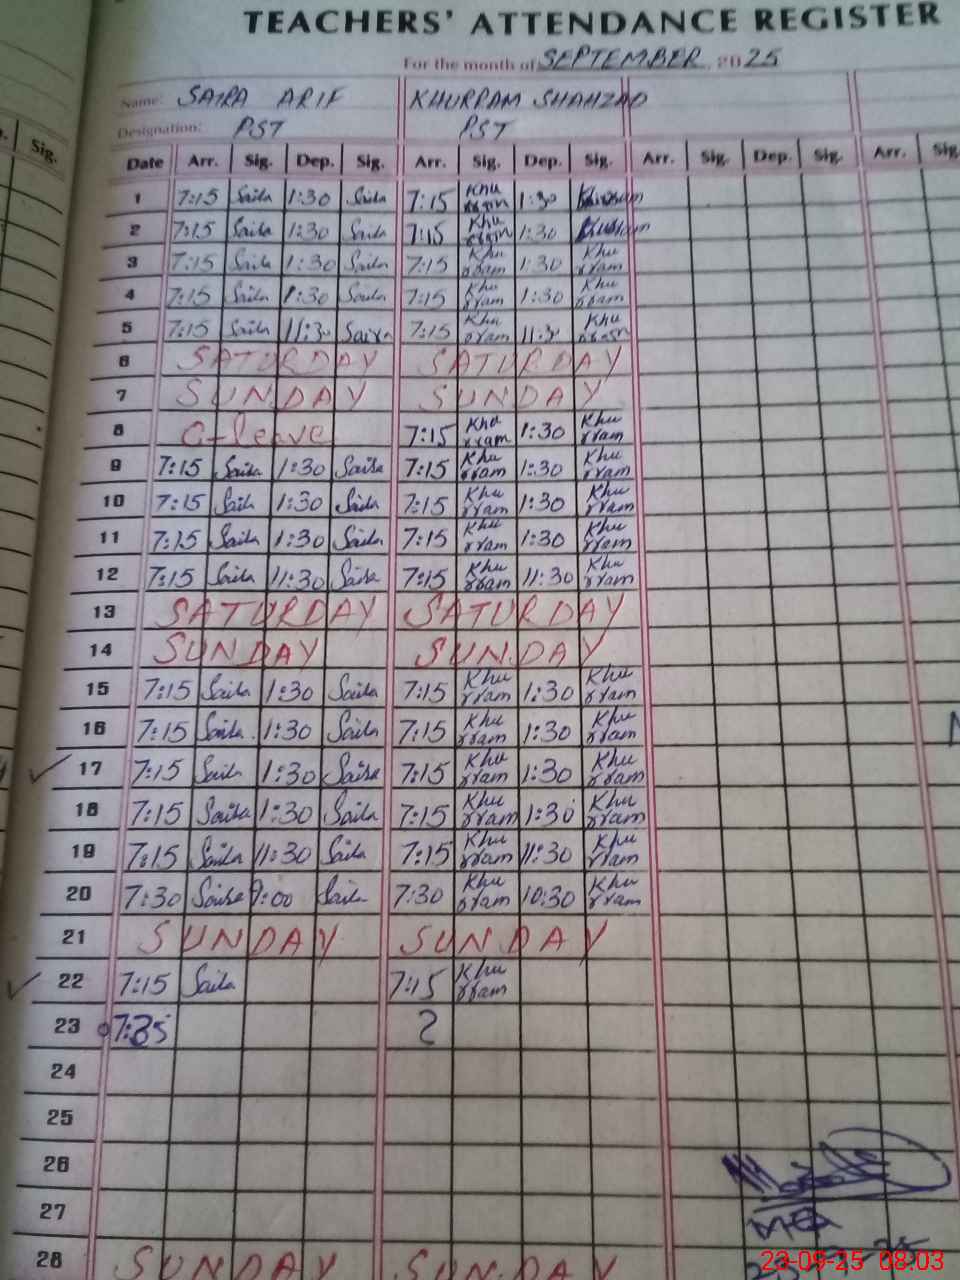 TEACHERS' ATTENDANCE REGISTER
For the month of SEPTEMBER 2025
Name: SAIRA ARIF KHURRAM SHAHZAD
Designation: PST PST
Sig. Date Arr. Sig. Dep. Sig. Arr. Sig. Dep. Sig. Arr. Sig. Dep. Sig. Arr. Sig.
1 7:15 Saira 1:30 Saira 7:15 Khurram 1:30 Khurram
2 7:15 Saira 1:30 Saira 7:15 Khurram 1:30 Khurram
3 7:15 Saira 1:30 Saira 7:15 Khurram 1:30 Khurram
4 7:15 Saira 1:30 Saira 7:15 Khurram 1:30 Khurram
5 7:15 Saira 11:30 Saira 7:15 Khurram 11:30 Khurram
6 SATURDAY SATURDAY
7 SUNDAY SUNDAY
8 C-leave 7:15 Khurram 1:30 Khurram
9 7:15 Saira 1:30 Saira 7:15 Khurram 1:30 Khurram
10 7:15 Saira 1:30 Saira 7:15 Khurram 1:30 Khurram
11 7:15 Saira 1:30 Saira 7:15 Khurram 1:30 Khurram
12 7:15 Saira 11:30 Saira 7:15 Khurram 11:30 Khurram
13 SATURDAY SATURDAY
14 SUNDAY SUNDAY
15 7:15 Saira 1:30 Saira 7:15 Khurram 1:30 Khurram
16 7:15 Saira 1:30 Saira 7:15 Khurram 1:30 Khurram
17 7:15 Saira 1:30 Saira 7:15 Khurram 1:30 Khurram
18 7:15 Saira 1:30 Saira 7:15 Khurram 1:30 Khurram
19 7:15 Saira 11:30 Saira 7:15 Khurram 11:30 Khurram
20 7:30 Saira 9:00 Saira 7:30 Khurram 10:30 Khurram
21 SUNDAY SUNDAY
22 7:15 Saira 7:15 Khurram
23 7:35
24
25
26
27
MEA
28 SUNDAY SUNDAY
23-09-25 08:03